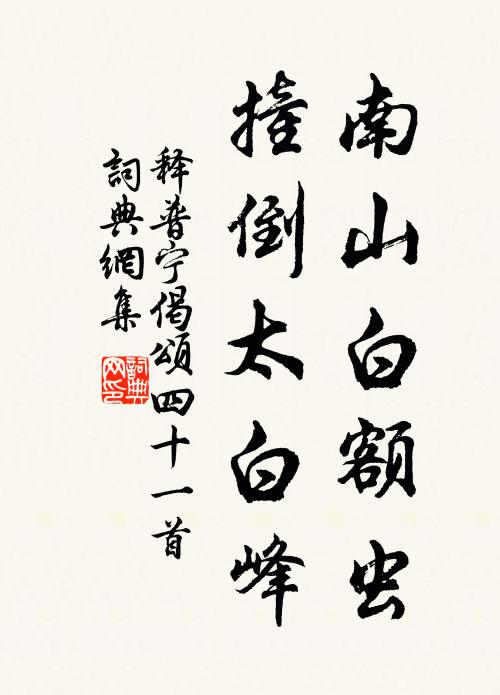 南山白额虫
撞倒太白峰
释普宁偈颂四十一首
詞典網集
詞典网印